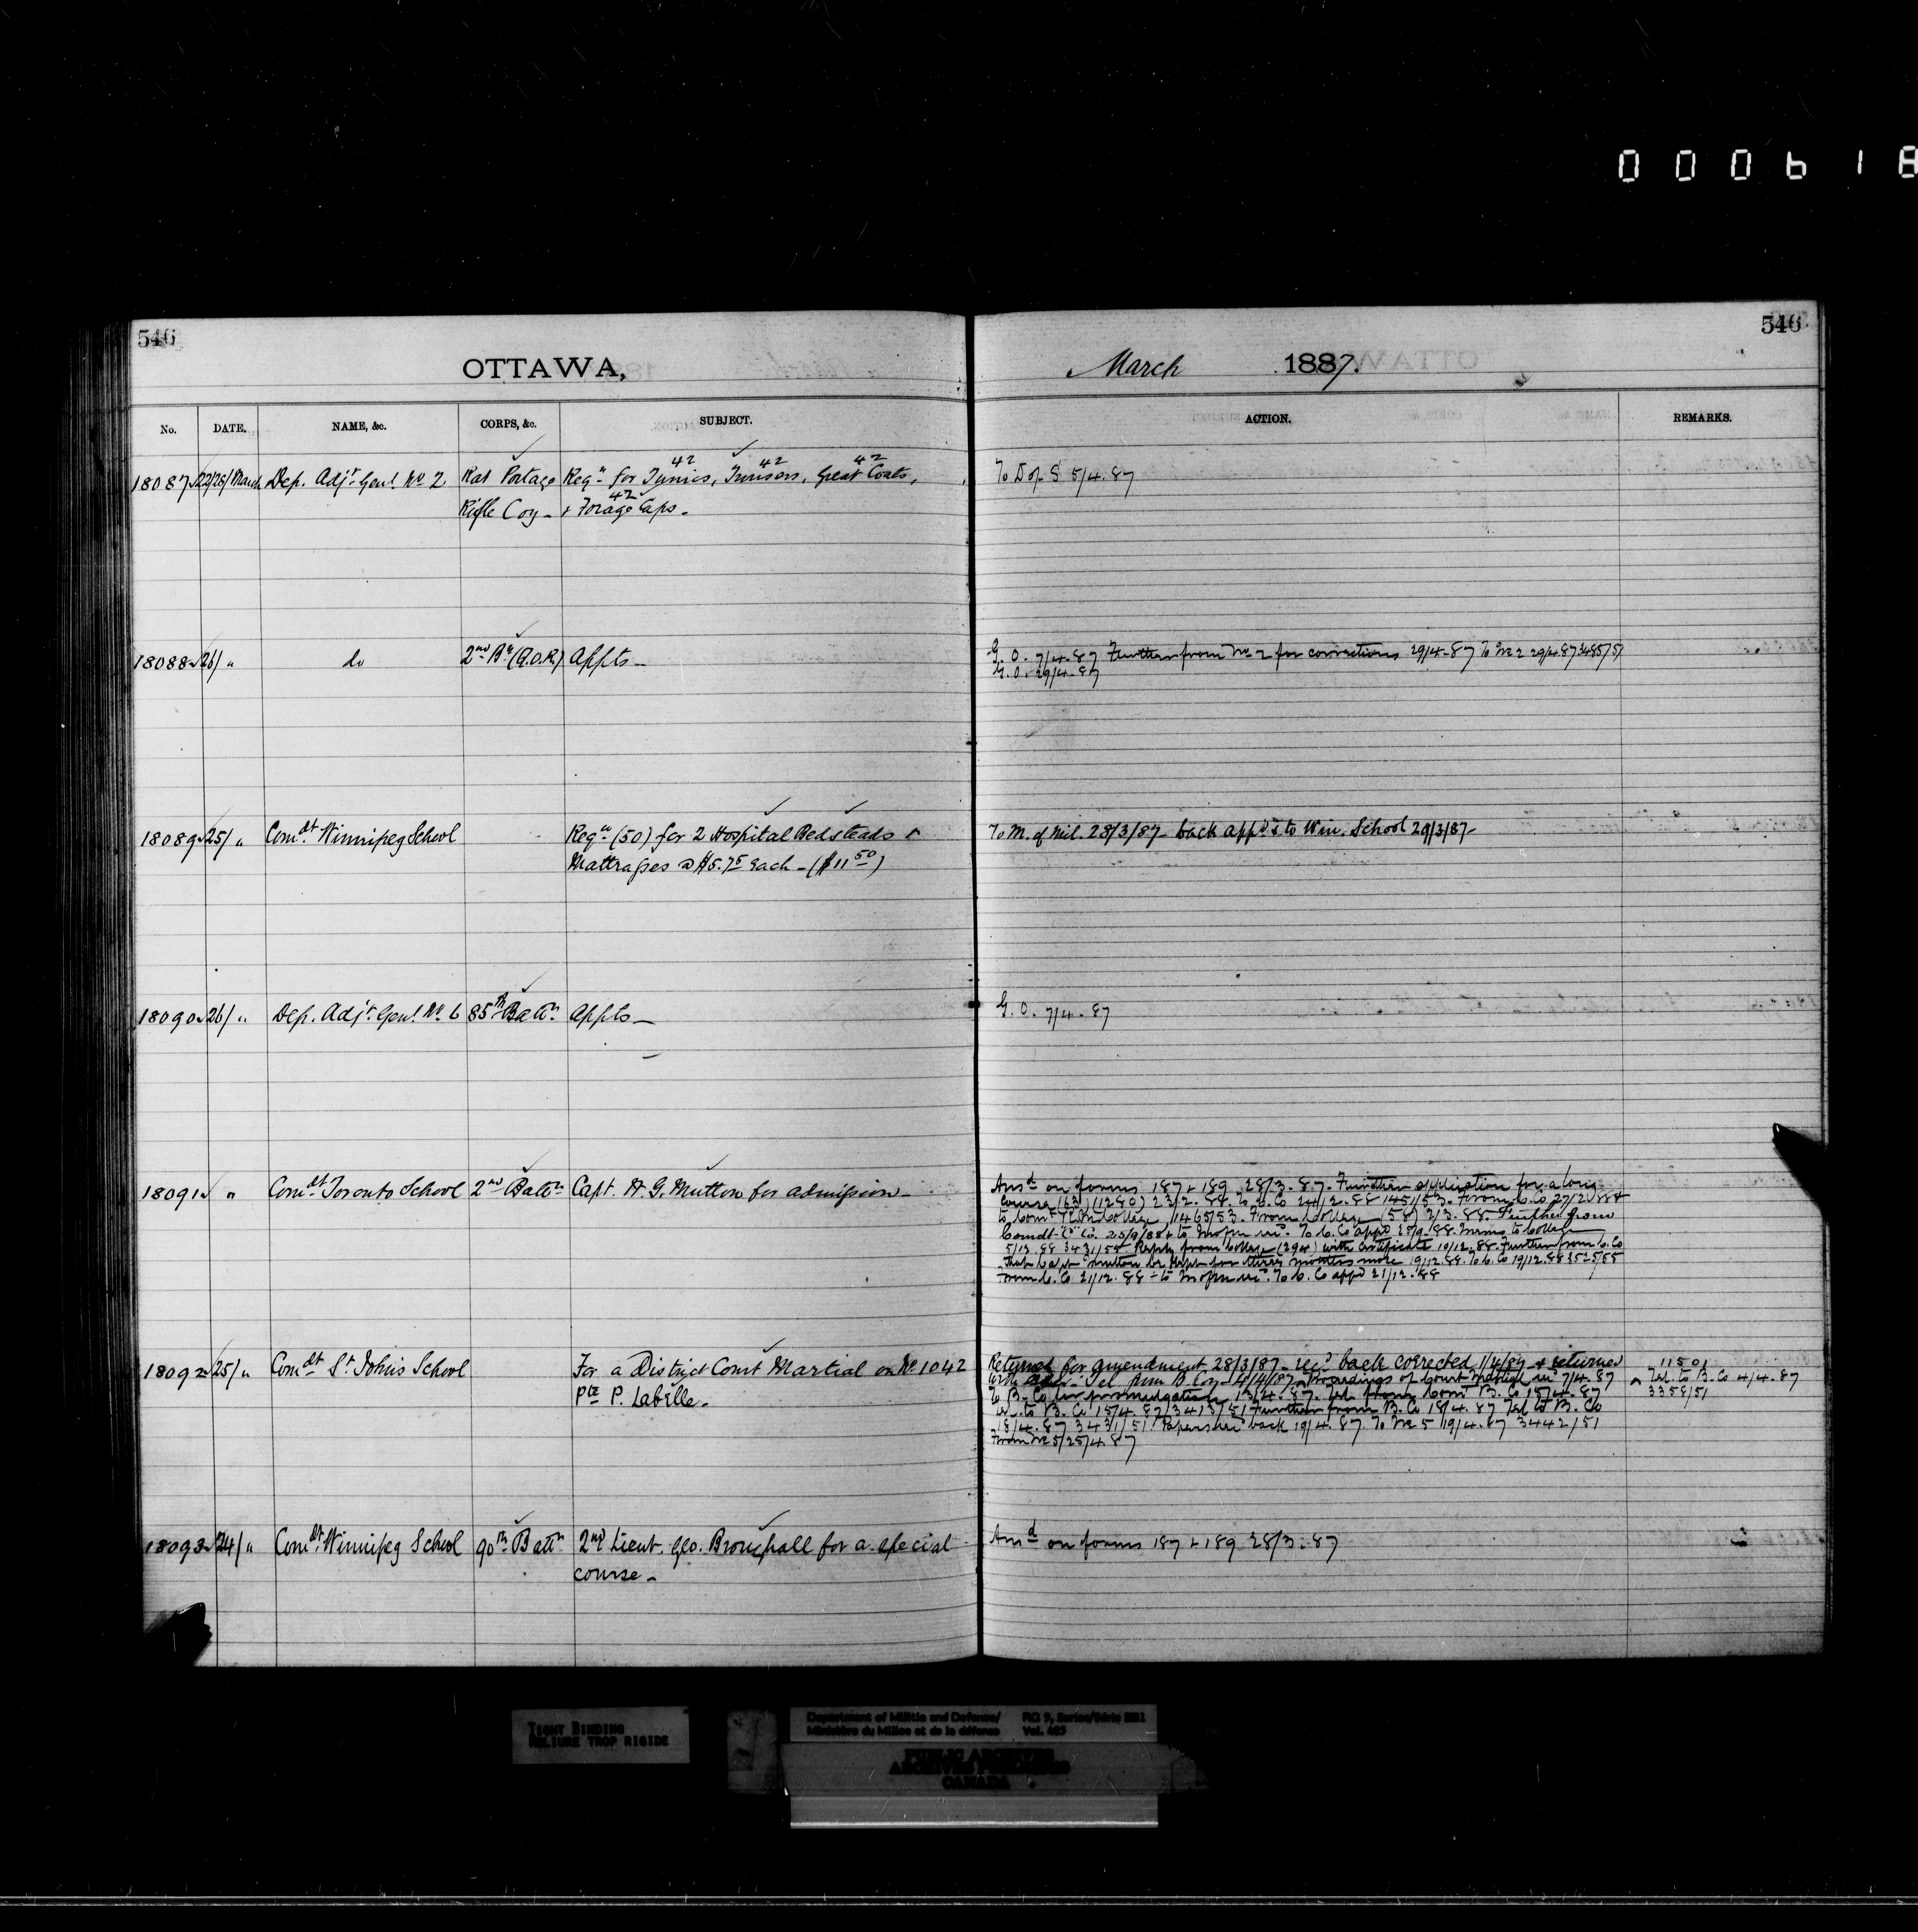 000618
546
546
OTTAWA,
March 1887.
No. DATE. NAME, &c. CORPS, &c. SUBJECT. ACTION. REMARKS.
18087 22/28/March Dep. Adjt. Genl. No 2 Rat Portage Reqn for Tunics, Trousers, Great Coats, To D of S 5/4.87
42 42 42
Rifle Coy - + Forage Caps -
42
18088 26/ " do 2nd Bn (Q.O.R) Appts - G.O. 7/4.87 Further from No 2 for corrections 29/4.87 To No 2 29/4.87 3485/51
G.O. 29/4.87
18089 25/ " Comdt. Winnipeg School Reqn (50) for 2 Hospital Bedsteads + To M. of Mil. 28/3/87 - back appd & to Win. School 29/3/87 -
Mattrasses @ $5.75 each - ($11 50)
18090 26/ " Dep. Adjt. Genl. No 6 85th Battn Appts - G.O. 7/4.87
18091 " Comdt Toronto School 2nd Battn Capt. H. G. Mutton for admission - Ansd on forms 187 + 189 28/3.87. Further application for a long
Course (63) (1280) 23/2.88. To C. Co 24/2.88 1451/53. From C. Co 27/2.88 +
to Comt R.M. College 1465/53. From College (58) 2/3.88. Further from
Comdt "C" Co. 25/9/88 + to M of M recd. To C. Co appd 28/9.88. Memo to College
5/12.88 3431/55 Reply from College (294) with certificate 10/12.88. Further from C. Co
that Capt Mutton be kept for three months more 19/12.88. To C. Co 19/12.88 3525/55
From C. Co 21/12.88 - to M of M recd. To C. Co appd 21/12.88
18092 25/ " Comdt St. John's School For a District Court Martial on No 1042 Returned for amendment 28/3/87 - recd back corrected 1/4/87 + returned
Pte P. Labelle - Tel from B. Coy - 4/4/87. Proceedings of Court Martial recd 7/4.87
To B. Co for promulgation 13/4.87. Tel. from Comt B. Co 15/4.87
Tel. to B. Co 15/4.87 3413/51 Further from B. Co 18/4.87 Tel to B. Co
18/4.87 3431/51 Papers recd back 19/4.87. To No 5 19/4.87 3442/51
From No 5/25/4.87
11501
Tel. to B. Co 4/4.87
3358/51
18093 24/ " Comdt. Winnipeg School 90th Battn 2nd Lieut. Geo. Broughall for a special Ansd on forms 187 + 189 28/3.87
course -
TIGHT BINDING
RELIURE TROP RIGIDE
Department of Militia and Defence/ RG 9, Series/Série IIB1
Ministère du Milice et de la défense Vol. 485
PUBLIC ARCHIVES
ARCHIVES PUBLIQUES
CANADA